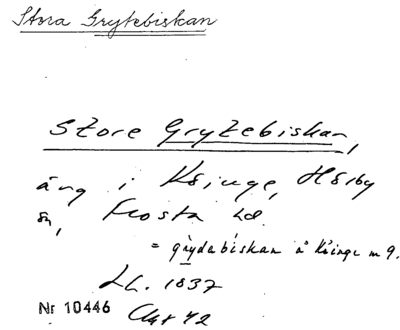 Stora Grytebiskan
Store Grytebiskan,
äng i Ksinge, Hörby
sn, Frosta hd.
= grydabiskan å Ksinge m 9.
LL. 1837
Nr 10446 42